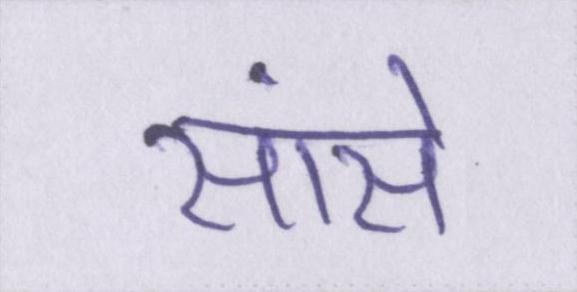 सांसे